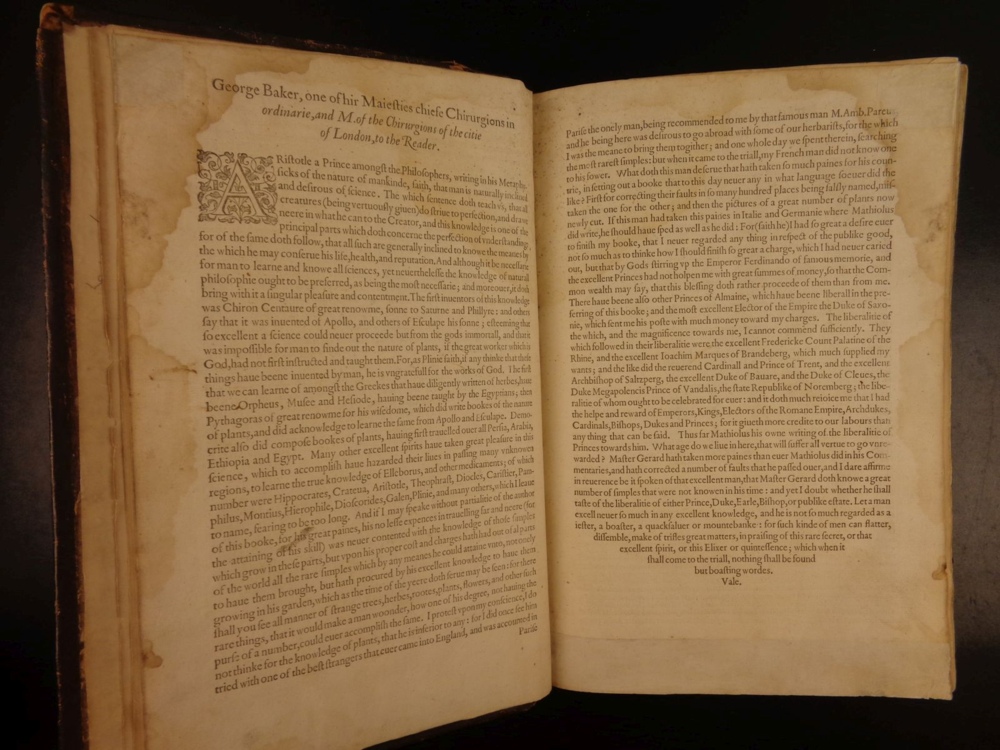 George Baker, one of hir Maiesties chiefe Chirurgions in
ordinarie, and M. of the Chirurgions of the citie
of London, to the Reader.
ARistotle a Prince amongst the Philosophers, writing in his Metaphy-
sicks of the nature of mankinde, saith, that man is naturally inclined
and desirous of science. The which sentence doth teach vs, that all
creatures (being vertuously giuen) do striue to perfection, and draw
neere in what he can to the Creator, and this knowledge is one of the
principall parts which doth concerne the perfection of vnderstanding:
for of the same doth follow, that all such are generally inclined to know the meanes by
the which he may conserue his life, health, and reputation. And although it be necessarie
for man to learne and knowe all sciences, yet neuerthelesse the knowledge of naturall
philosophie ought to be preferred, as being the most necessarie; and moreouer, it doth
bring with it a singular pleasure and contentment. The first inuentors of this knowledge
was Chiron Centaure of great renowme, sonne to Saturne and Phillyre: and others
say that it was inuented of Apollo, and others of Esculape his sonne; esteeming that
so excellent a science could neuer proceede but from the gods immortall, and that it
was impossible for man to finde out the nature of plants, if the great worker which is
God, had not first instructed and taught them. For, as Plinie saith, if any thinke that these
things haue beene inuented by man, he is vngratefull for the works of God. The first
that we can learne of amongst the Greekes that haue diligently written of herbes, haue
beene Orpheus, Musee and Hesiode, hauing beene taught by the Egyptians; then
Pythagoras of great renowme for his wisedome, which did write bookes of the nature
of plants, and did acknowledge to learne the same from Apollo and Esculape. Demo-
crite also did compose bookes of plants, hauing first trauelled ouer all Persia, Arabia,
Ethiopia and Egypt. Many other excellent spirits haue taken great pleasure in this
science, which to accomplish haue hazarded their liues in passing many vnknowen
regions, to learne the true knowledge of Elleborus, and other medicaments; of which
number were Hippocrates, Crateua, Aristotle, Theophrast, Diocles, Caristier, Pam-
philus, Montius, Hierophile, Dioscorides, Galen, Plinie, and many others, which I leaue
to name, fearing to be too long. And if I may speake without partialitie of the author
of this booke, for his great paines, his no lesse expences in trauelling far and neere (for
the attaining of his skill) was neuer contented with the knowledge of those simples
which grow in these parts, but vpon his proper cost and charges hath had out of al parts
of the world all the rare simples which by any meanes he could attaine vnto, not onely
to haue them brought, but hath procured by his excellent knowledge to haue them
growing in his garden, which as the time of the yeere doth serue may be seen: for there
shall you see all manner of strange trees, herbes, rootes, plants, flowers, and other such
rare things, that it would make a man woonder, how one of his degree, not hauing the
purse of a number, could euer accomplish the same. I protest vpon my conscience, I do
not thinke for the knowledge of plants, that he is inferior to any: for I did once see him
tried with one of the best strangers that euer came into England, and was accounted in
Parise
Parise the onely man, being recommended to me by that famous man M. Amb. Pareus
and he being here was desirous to go abroad with some of our herbarists, for the which
I was the meane to bring them together; and one whole day we spent therein, searching
the most rarest simples: but when it came to the triall, my French man did not know one
to his fower. What doth this man deserue that hath taken so much paines for his coun-
trie, in setting out a booke that to this day neuer any in what language soeuer did the
like? First for correcting their faults in so many hundred places being falsly named, mis-
taken the one for the other; and then the pictures of a great number of plants now
newly cut. If this man had taken this paines in Italie and Germanie where Mathiolus
did write, he should haue sped as well as he did: For (saith he) I had so great a desire euer
to finish my booke, that I neuer regarded any thing in respect of the publike good,
not so much as to thinke how I should finish so great a charge, which I had neuer caried
out, but that by Gods stirring vp the Emperor Ferdinando of famous memorie, and
the excellent Princes had not holpen me with great summes of money, so that the Com-
mon wealth may say, that this blessing doth rather proceede of them than from me.
There haue beene also other Princes of Almaine, which haue beene liberall in the pre-
ferring of this booke; and the most excellent Elector of the Empire the Duke of Saro-
nie, which sent me his poste with much money toward my charges. The liberalitie of
the which, and the magnificence towards me, I cannot commend sufficiently. They
which followed in their liberalitie were the excellent Fredericke Count Palatine of the
Rhine, and the excellent Ioachim Marques of Brandeberg, which much supplied my
wants; and the like did the reuerend Cardinall and Prince of Trent, and the excellent
Archbishop of Saltzperg, the excellent Duke of Bauare, and the Duke of Cleues, the
Duke Megapolencis Prince of Vandalis, the state Republike of Noremberg; the libe-
ralitie of whom ought to be celebrated for euer: and it doth much reioice me that I had
the helpe and reward of Emperors, Kings, Electors of the Romane Empire, Archdukes,
Cardinals, Bishops, Dukes and Princes; for it giueth more credite to our labours than
any thing that can be said. Thus far Mathiolus his owne writing of the liberalitie of
Princes towards him. What age do we liue in here, that will suffer all vertue to go vnre-
warded? Master Gerard hath taken more paines than euer Mathiolus did in his Com-
mentaries, and hath corrected a number of faults that he passed ouer, and I dare affirme
in reuerence be it spoken of that excellent man, that Master Gerard doth knowe a great
number of simples that were not knowen in his time: and yet I doubt whether he shall
taste of the liberalitie of either Prince, Duke, Earle, Bishop, or publike estate. Let a man
excell neuer so much in any excellent knowledge, and he is not so much regarded as a
iester, a boaster, a quacksaluer or mountebanke: for such kinde of men can flatter,
dissemble, make of trifles great matters, in praising of this rare secret, or that
excellent spirit, or this Elixer or quintessence; which when it
shall come to the triall, nothing shall be found
but boasting wordes.
Vale.